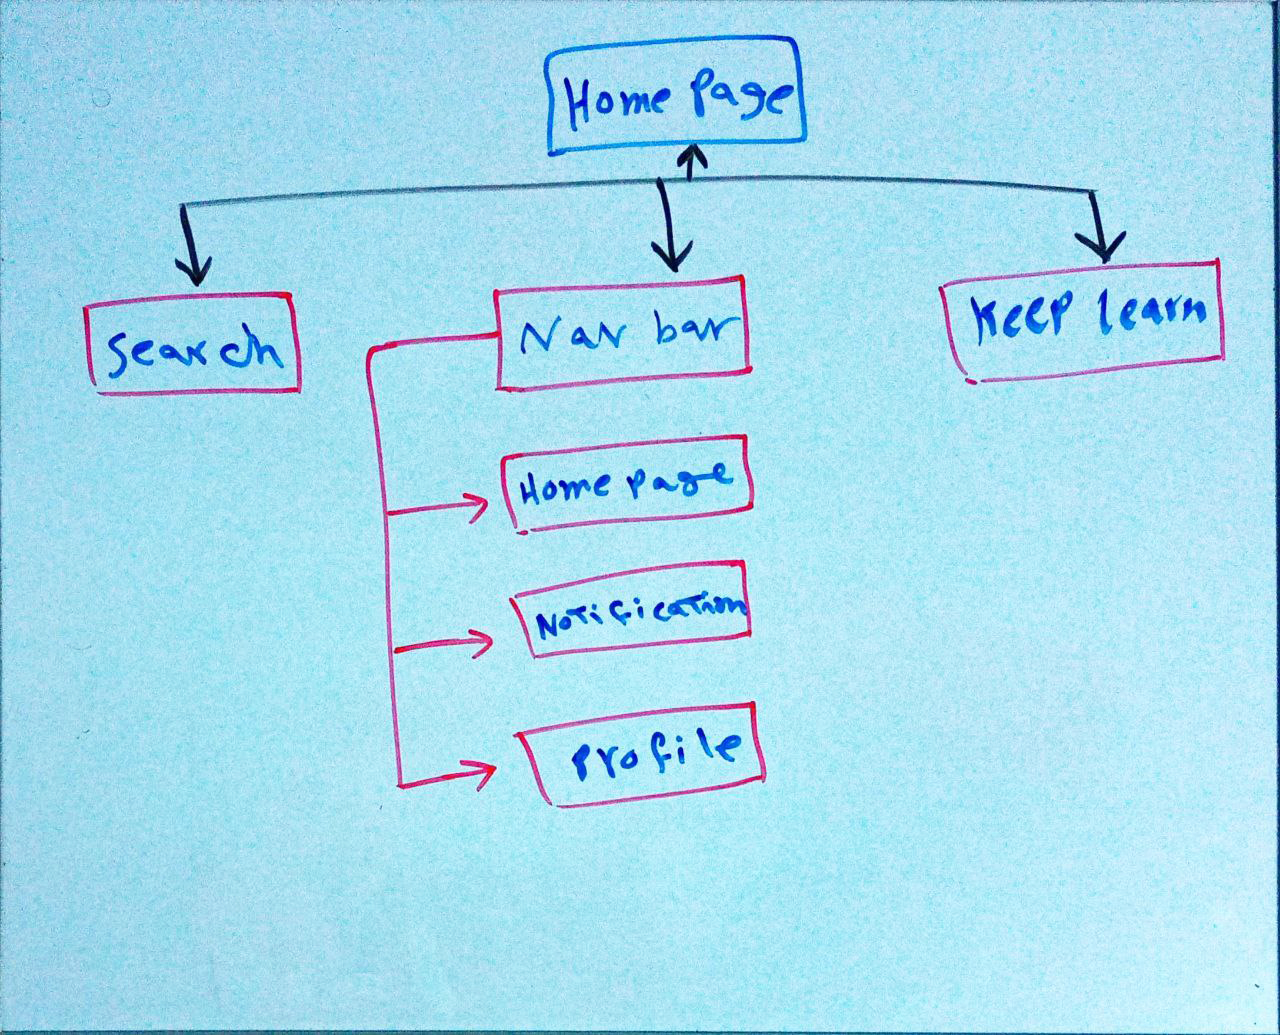 Home Page
Search
Nav bar
Keep learn
Home page
Notification
Profile